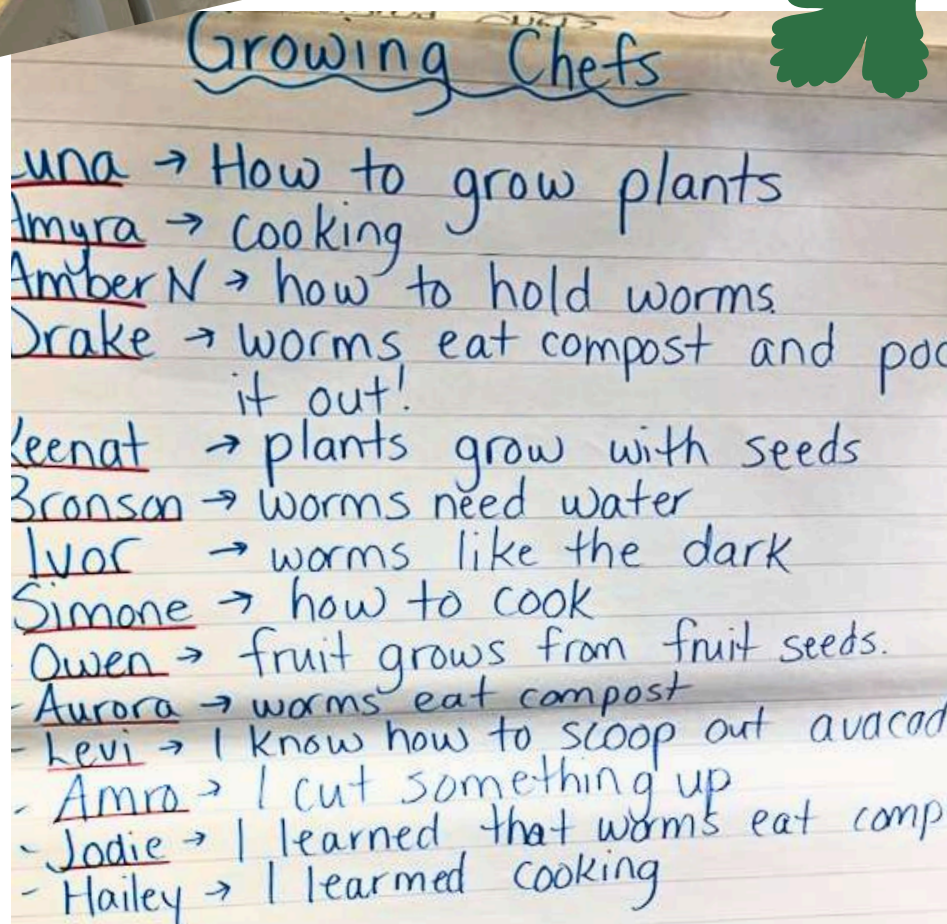 Growing Chefs
Luna → How to grow plants
Amyra → cooking
Amber N → how to hold worms.
Drake → worms eat compost and poo
it out!
Keenat → plants grow with seeds
Bronson → worms need water
Ivor → worms like the dark
Simone → how to cook
Owen → fruit grows from fruit seeds.
- Aurora → worms eat compost
- Levi → I know how to scoop out avacad
- Amro → I cut something up
- Jodie → I learned that worms eat comp
- Hailey → I learmed cooking